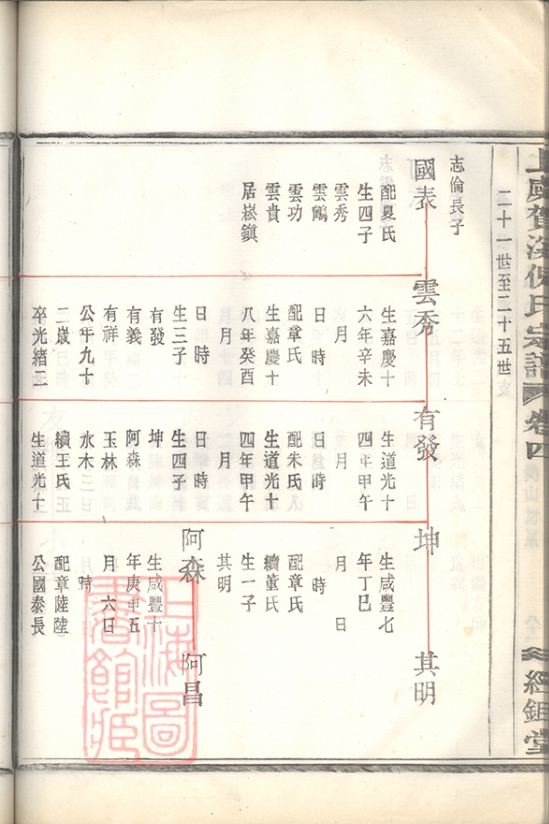 上虞賀溪倪氏宗譜 卷四 經鉏堂
二十一世至二十五世
志倫長子
國表 雲秀 有發 坤 其明
配夏氏
生四子
雲秀
雲鶴
雲功
雲貴
居崧鎮
生嘉慶十
六年辛未
月
日 時
配章氏
生嘉慶十
八年癸酉
月 月
日 時
生三子
有發
有義
有祥
公年九十
二歲
卒光緒二
生道光十
四年甲午
月
日 時
配朱氏
生道光十
四年甲午
月
日 時
生四子
坤
阿森
玉林
水木
續王氏
生道光十
生咸豐七
年丁巳
月 日
時
配章氏
續董氏
生一子
其明
阿森 阿昌
生咸豐十
年庚申五
月六日
時
配章陸陸
公國泰長
上海圖書館藏